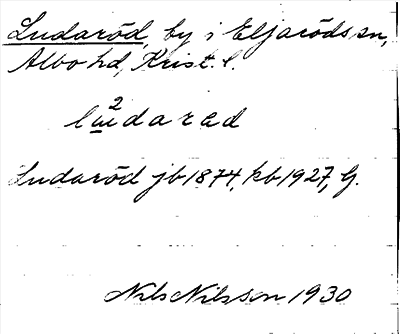 Ludaröd, by i Eljaröds sn,
Albo hd, Krist. l.
Ludaröd jb 1874, kb 1927, G.
Nils Nilsson 1930